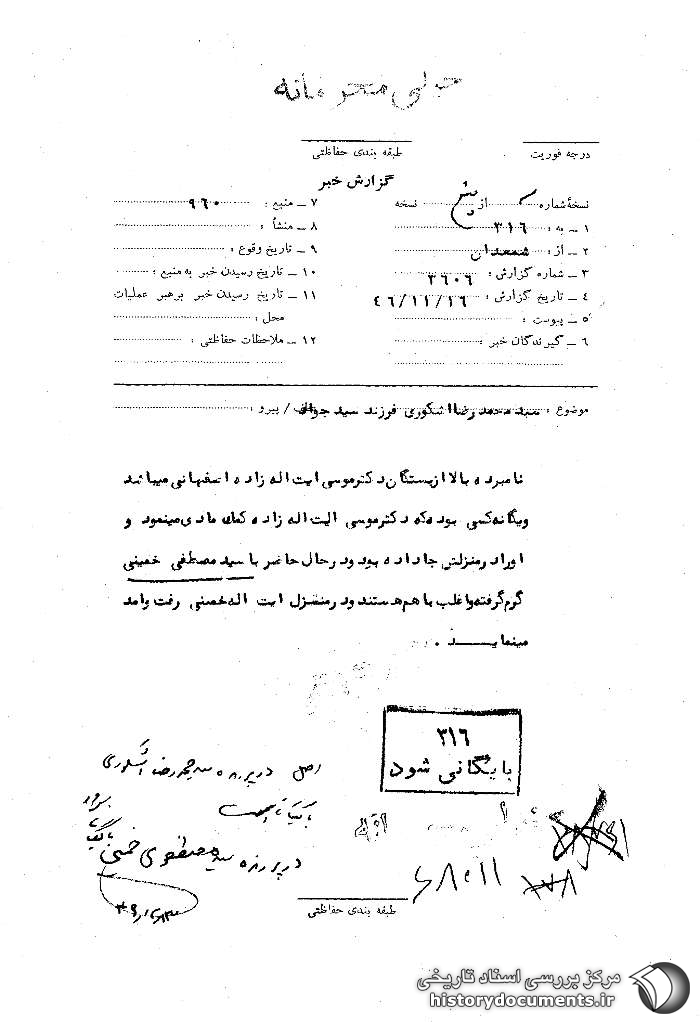 خیلی محرمانه
درجه فوریت
طبقه بندی حفاظتی
گزارش خبر
نسخهٔ شماره از نسخه
۱ – به : ۳۱۶
۲ – از : شمعدان
۳ – شماره گزارش : ۳۶۰۶
۴ – تاریخ گزارش : ۴۶/۱۱/۱۶
۵ – پیوست :
۶ – گیرندگان خبر :
۷ – منبع : ۹۶۰
۸ – منشأ :
۹ – تاریخ وقوع :
۱۰ – تاریخ رسیدن خبر به منبع :
۱۱ – تاریخ رسیدن خبر برهبر عملیات
محل :
۱۲ – ملاحظات حفاظتی :
موضوع : سید محمد رضا اشکوری فرزند سید جواد / پیرو :
نامبرده بالا از بستگان دکتر موسی ایت اله زاده اصفهانی میباشد
ویگانه کسی بوده که دکتر موسی ایت اله زاده کمک مادی مینمود و
او را در منزلش جا داده بود و در حال حاضر با سید مصطفی خمینی
گرم گرفته و اغلب با هم هستند و در منزل ایت اله خمینی رفت وامد
مینماید .
۳۱۶
بایگانی شود
اصل در پرونده سید محمد رضا اشکوری
بایگانی است
در پرونده سید مصطفوی خمینی
طبقه بندی حفاظتی
مرکز بررسی اسناد تاریخی
historydocuments.ir